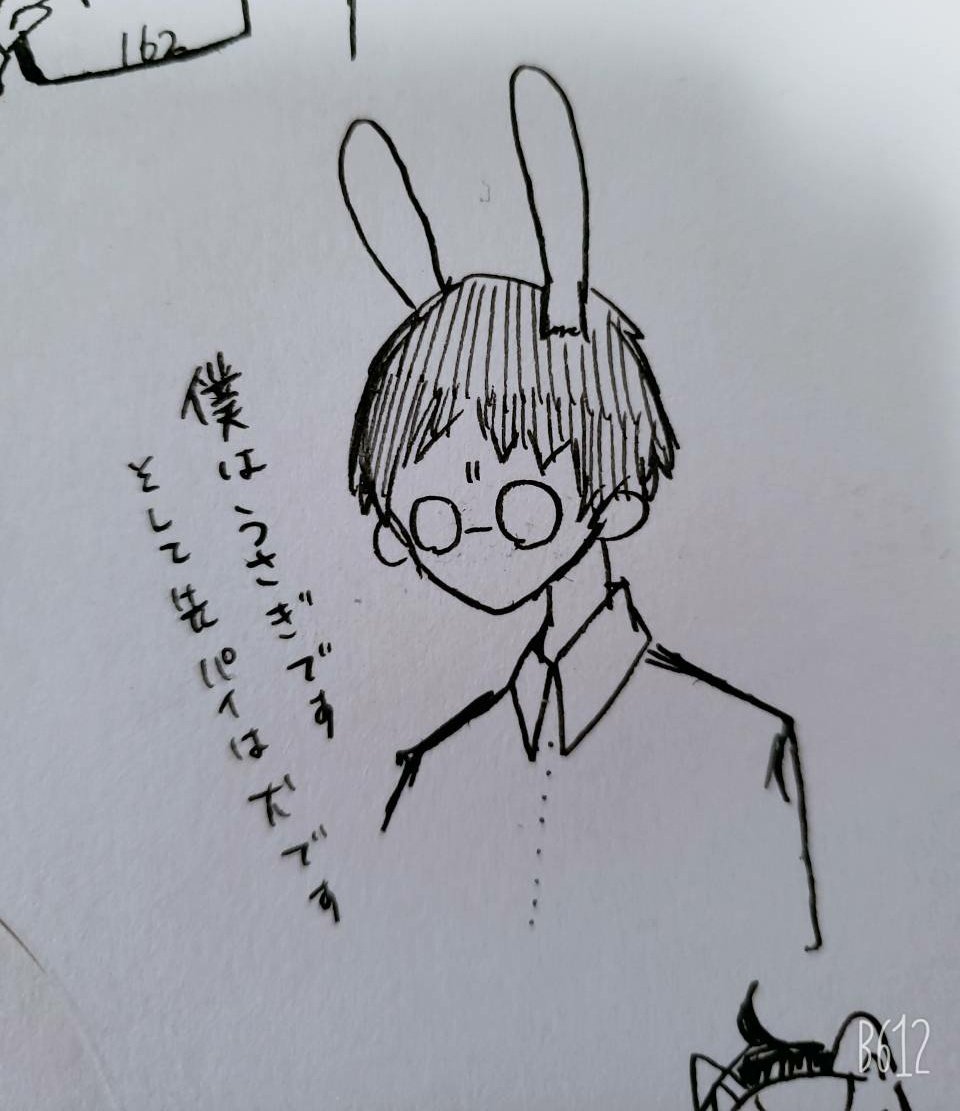 162
僕はうさぎです
そして先パイは犬です
B612